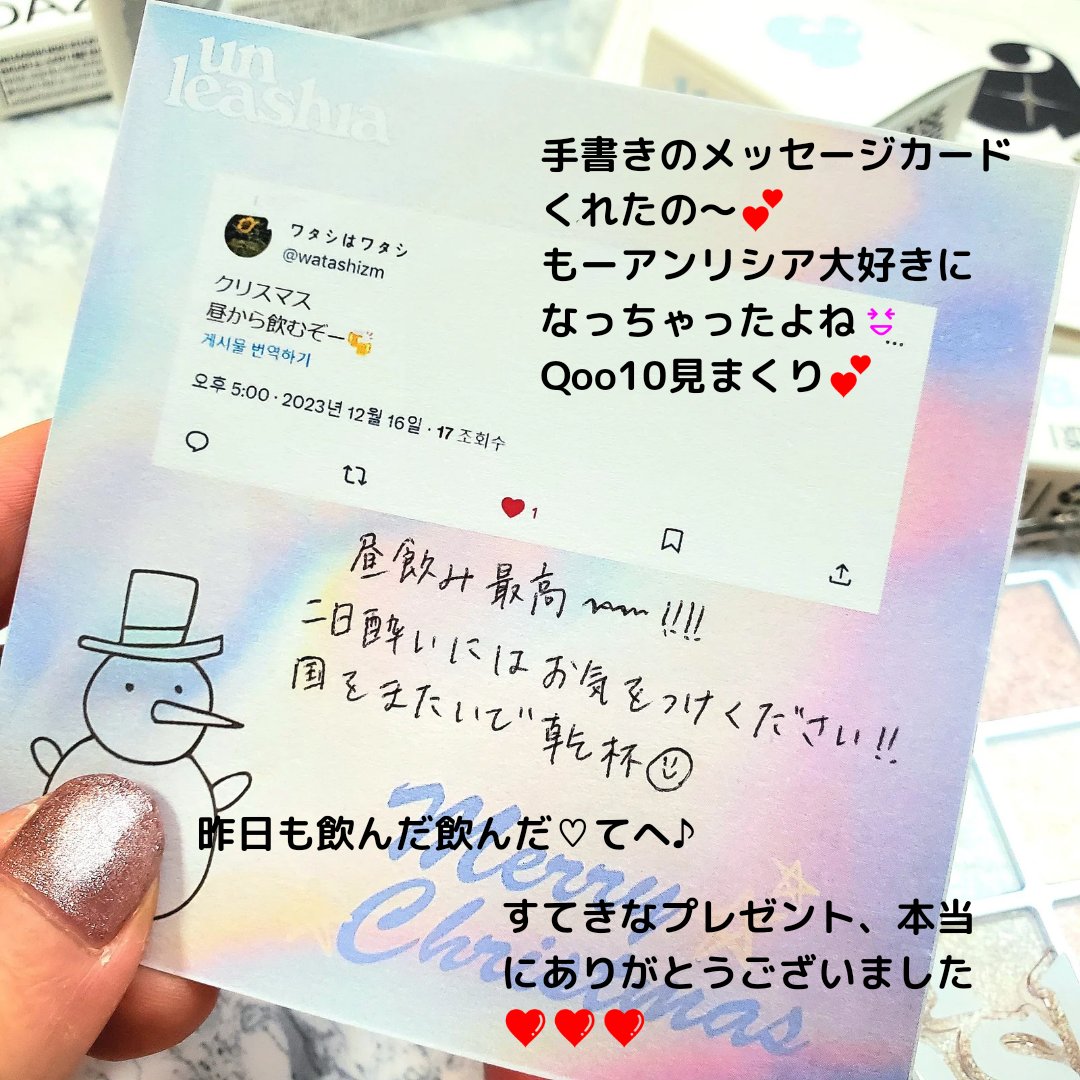 un
leashia
手書きのメッセージカード
くれたの〜💕
もーアンリシア大好きに
なっちゃったよね
Qoo10見まくり💕
ワタシはワタシ
@watashizm
クリスマス
昼から飲むぞー🍻
게시물 번역하기
오후 5:00 · 2023년 12월 16일 · 17 조회수
1
昼飲み最高〜〜!!!!
二日酔いにはお気をつけください!!
国をまたいで乾杯☺
昨日も飲んだ飲んだ♡てへ♪
Merry
Christmas
すてきなプレゼント、本当
にありがとうございました
❤❤❤